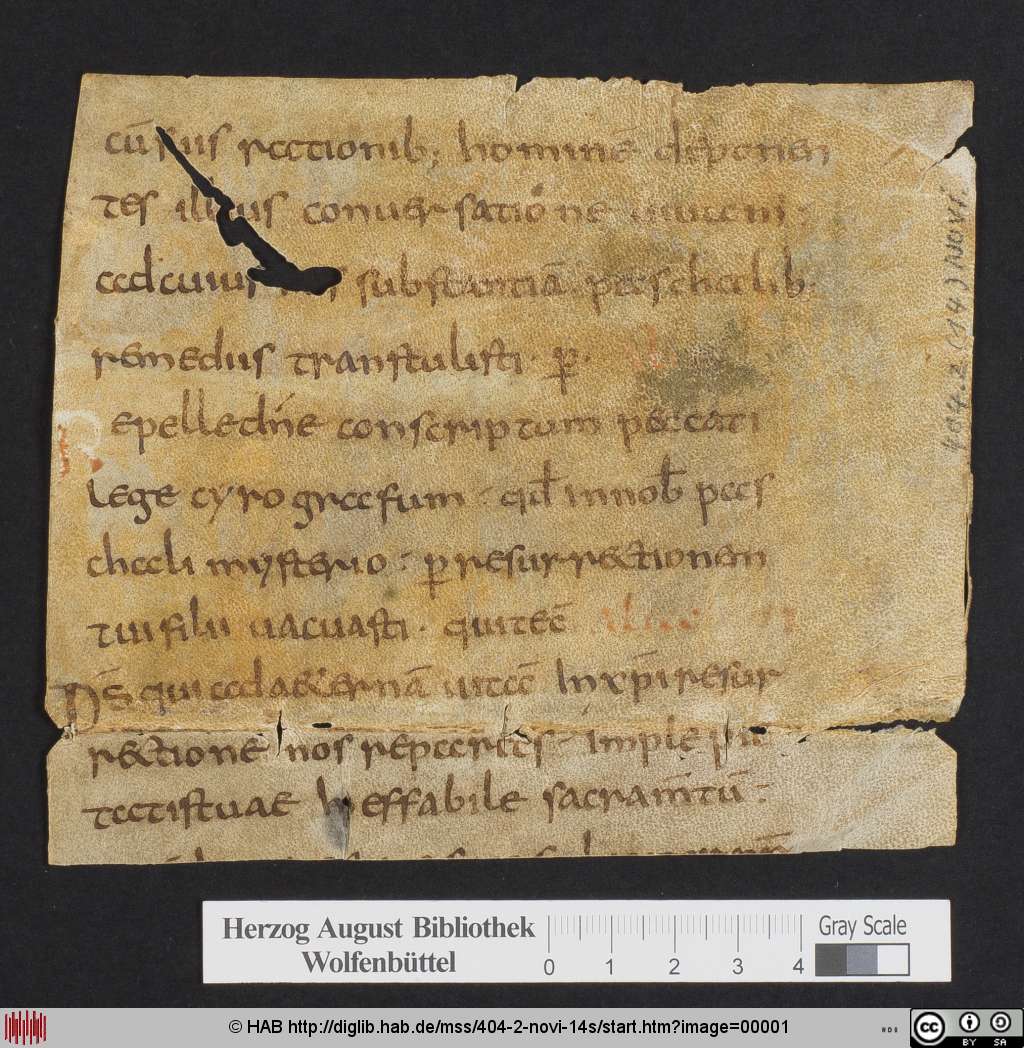 cū suis actionib; hominē deponen
tes illius conuersatione uiuam:
ad cuius nos substantiā paschalib;
remediis transtulisti · p̱ ·
epelle dn̄e conscriptum peccati
lege cyrografum : qđ in nob̄ pas
chali mysterio : p̱ resurrectionem
tui filii uacuasti · qui tecū
Ds̄ qui ad aeternā uitā in xp̄i resur
rectione nos reparas · imple pie
tatis tuae ineffabile sacram̄tū :
404.2 (14) NOVI.
Herzog August Bibliothek
Wolfenbüttel
0 1 2 3 4
Gray Scale
© HAB http://diglib.hab.de/mss/404-2-novi-14s/start.htm?image=00001
cc BY SA